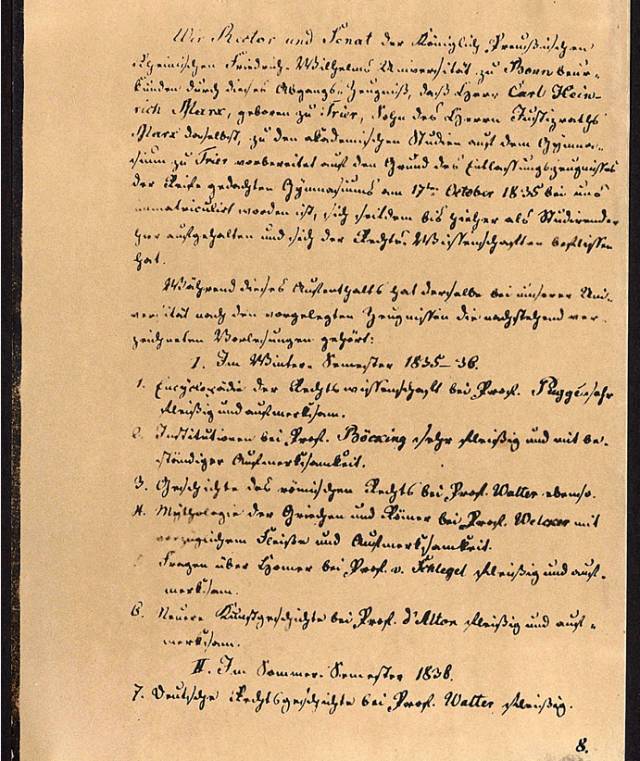 Wir Rector und Senat der Königlich Preußischen
Rheinischen Friedrich-Wilhelms Universität zu Bonn beur-
kunden durch dieses Abgangs-Zeugniß, daß Herr Carl Hein-
rich Marx, geboren zu Trier, Sohn des Herrn Justizraths
Marx daselbst, zu den akademischen Studien auf dem Gymna-
sium zu Trier vorbereitet auf den Grund des Entlassungszeugnisses
der Reife gedachten Gymnasiums am 17ten October 1835 bei uns
immatriculirt worden ist, sich seitdem bis hieher als Studirender
hier aufgehalten und sich der Rechts-Wissenschaften beflissen
hat.
Während dieses Aufenthalts hat derselbe bei unserer Uni-
versität nach den vorgelegten Zeugnissen die nachstehend ver-
zeichneten Vorlesungen gehört:
I. Im Winter-Semester 1835-36.
1. Encyclopädie der Rechtswissenschaft bei Prof. Puggé sehr
fleißig und aufmerksam.
2. Institutionen bei Prof. Böcking sehr fleißig und mit be-
ständiger Aufmerksamkeit.
3. Geschichte des römischen Rechts bei Prof. Walter ebenso.
4. Mythologie der Griechen und Römer bei Prof. Welcker mit
vorzüglichem Fleiße und Aufmerksamkeit.
Fragen über Homer bei Prof. v. Schlegel fleißig und auf-
merksam.
6. Neuere Kunstgeschichte bei Prof. d'Alton fleißig und auf-
merksam.
II. Im Sommer-Semester 1836.
7. Deutsche Rechtsgeschichte bei Prof. Walter fleißig.
8.